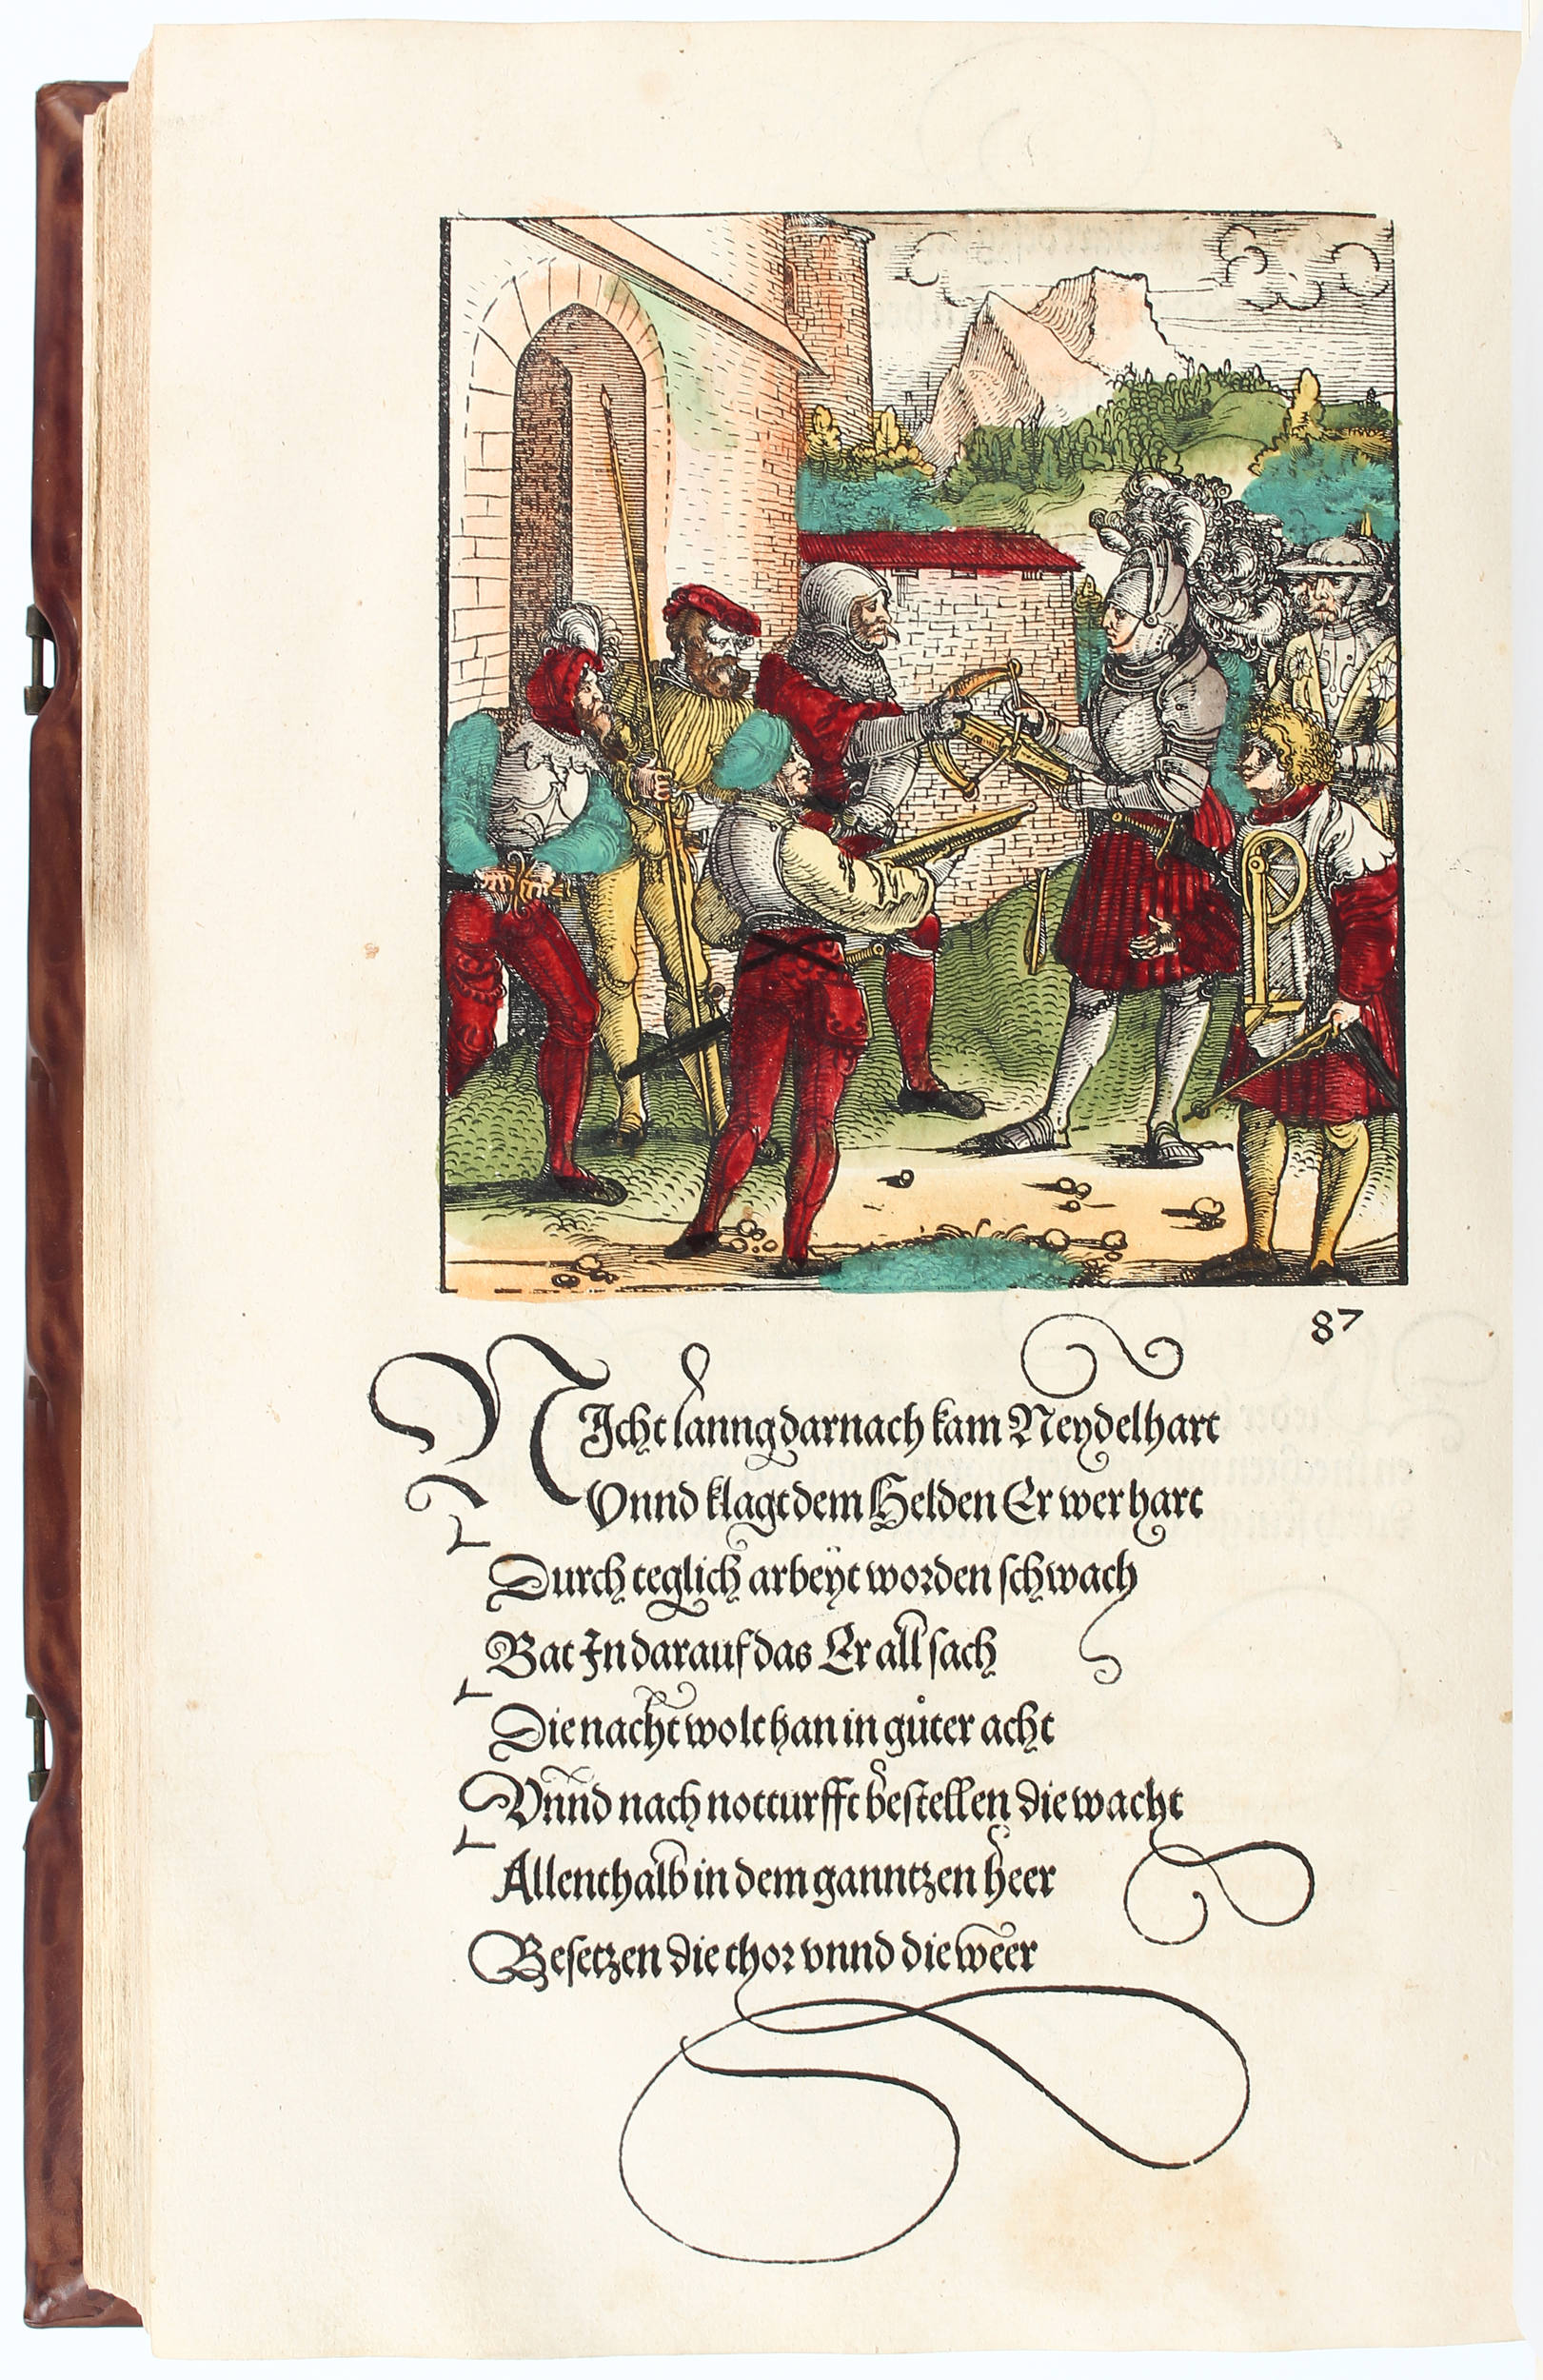 87
NIcht lanng darnach kam Neydelhart
Vnnd klagt dem Helden Er wer hart
Durch teglich arbeyt worden schwach
Bat In darauf das Er all sach
Die nacht wolt han in gůter acht
Vnnd nach notturfft bestellen die wacht
Allenthalb in dem ganntzen heer
Besetzen die thor vnnd die weer